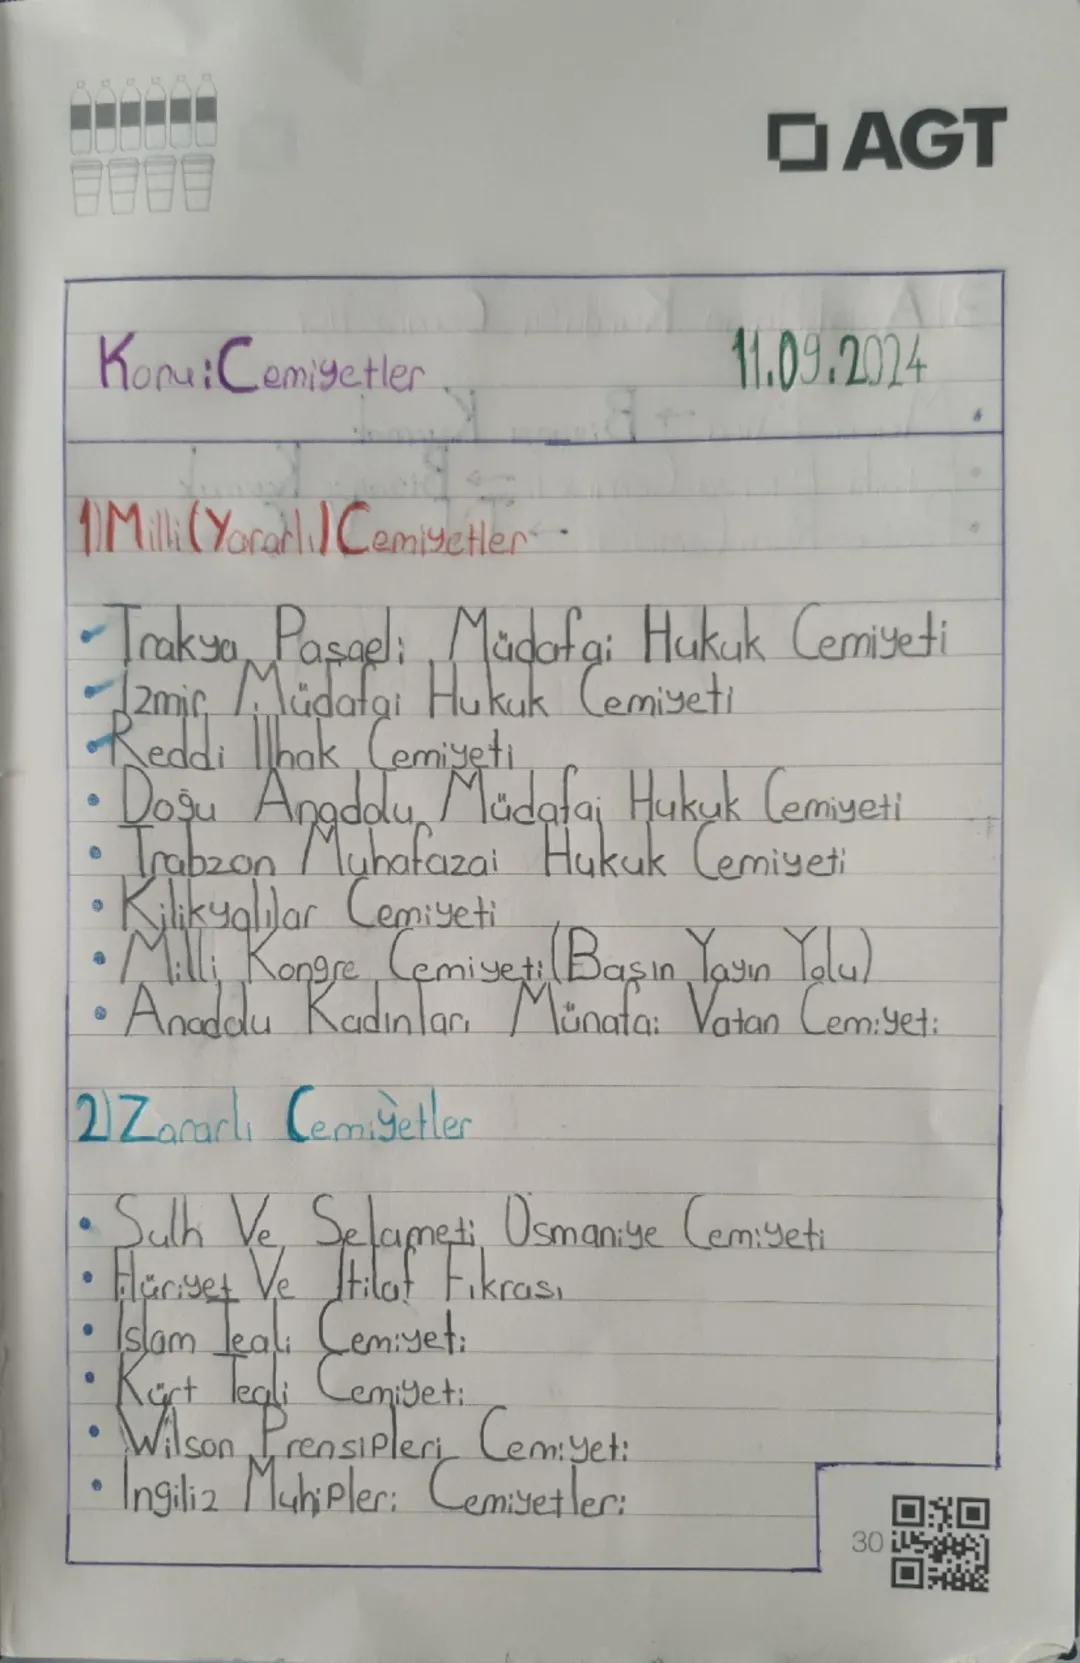 AGT
Konu: Cemiyetler
11.09.2024
1) Milli (Yararlı) Cemiyetler
• Trakya Paşaeli Müdafai Hukuk Cemiyeti
• İzmir Müdafai Hukuk Cemiyeti
• Reddi İlhak Cemiyeti
• Doğu Anadolu Müdafai Hukuk Cemiyeti
• Trabzon Muhafazai Hukuk Cemiyeti
• Kilikyalılar Cemiyeti
• Milli Kongre Cemiyeti (Basın Yayın Yolu)
• Anadolu Kadınları Münafai Vatan Cemiyeti
2) Zararlı Cemiyetler
• Sulh Ve Selameti Osmaniye Cemiyeti
• Hüriyet Ve İtilaf Fıkrası
• İslam Teali Cemiyeti
• Kürt Teali Cemiyeti
• Wilson Prensipleri Cemiyeti
• İngiliz Muhipleri Cemiyetleri
30